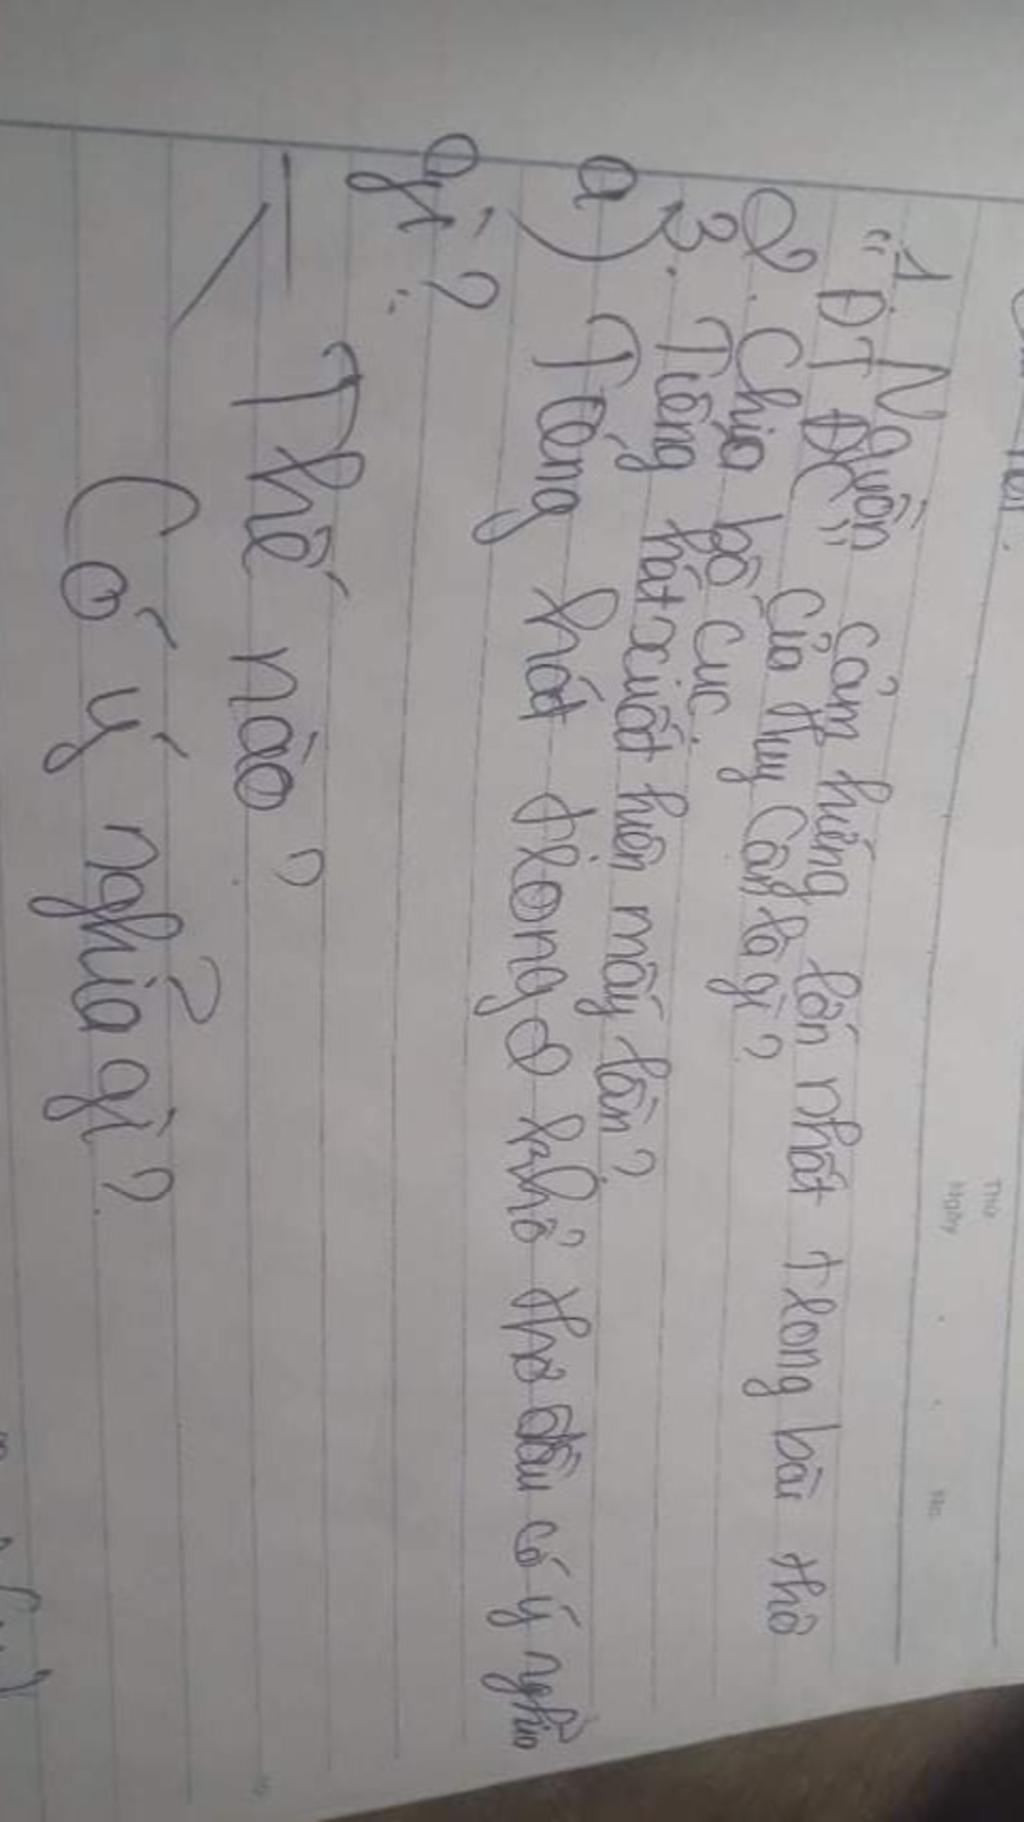 1. Nguồn cảm hứng lớn nhất trong bài thơ
"ĐTĐC" của Huy Cận là gì?
2. Chia bố cục.
3. Tiếng hát xuất hiện mấy lần?
a) Tiếng hát trong 2 khổ thơ đầu có ý nghĩa
gì?
Thế nào?
Có ý nghĩa gì?
Thứ
Ngày